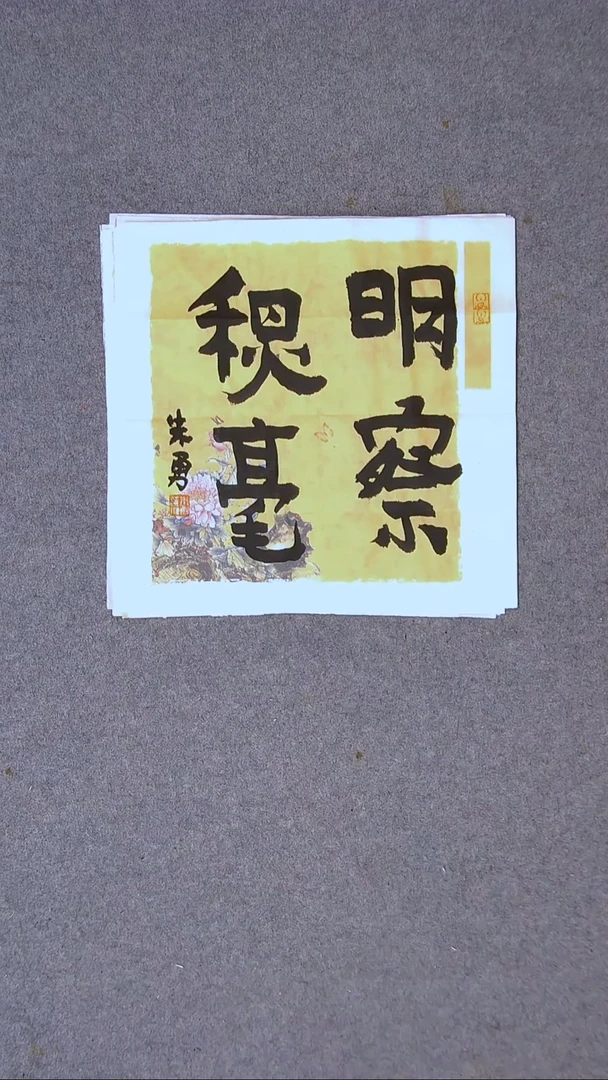 明察
秋毫
朱勇